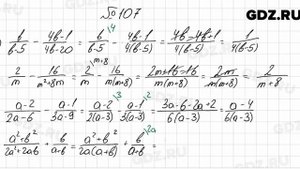 №107
GDZ.RU
b/(b-5) - (4b-1)/(4b-20) = b/(b-5) \4 - (4b-1)/(4(b-5)) = (4b-4b+1)/(4(b-5)) = 1/(4(b-5))
2/m - 16/(m²+8m) = 2/m \m+8 - 16/(m(m+8)) = (2m+16-16)/(m(m+8)) = 2m/(m(m+8)) = 2/(m+8)
(a-2)/(2a-6) - (a-1)/(3a-9) = (a-2)/(2(a-3)) \3 - (a-1)/(3(a-3)) \2 = (3a-6-2a+2)/(6(a-3)) = (a-4)/(6(a-3))
(a²+b²)/(2a²+2ab) + b/(a+b) = (a²+b²)/(2a(a+b)) + b/(a+b) \2a =
GDZ.RU